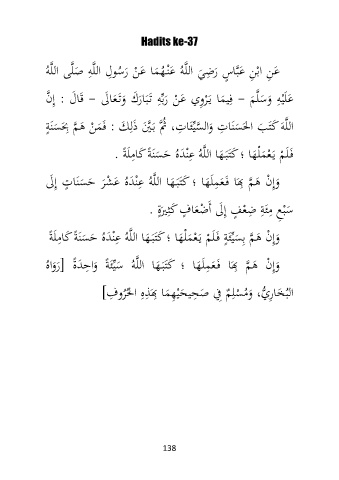 Hadits ke-37
عَنِ ابْنِ عَبَّاسٍ رَضِيَ اللَّهُ عَنْهُمَا عَنْ رَسُولِ اللَّهِ صَلَّى اللَّهُ
عَلَيْهِ وَسَلَّمَ – فِيمَا يَرْوِي عَنْ رَبِّهِ تَبَارَكَ وَتَعَالَى – قَالَ : إِنَّ
اللَّهَ كَتَبَ الْحَسَنَاتِ وَالسَّيِّئَاتِ، ثُمَّ بَيَّنَ ذَلِكَ : فَمَنْ هَمَّ بِحَسَنَةٍ
فَلَمْ يَعْمَلْهَا ؛ كَتَبَهَا اللَّهُ عِنْدَهُ حَسَنَةً كَامِلَةً .
وَإِنْ هَمَّ بِهَا فَعَمِلَهَا ؛ كَتَبَهَا اللَّهُ عِنْدَهُ عَشْرَ حَسَنَاتٍ إِلَى
سَبْعِ مِئَةِ ضِعْفٍ إِلَى أَضْعَافٍ كَثِيرَةٍ .
وَإِنْ هَمَّ بِسَيِّئَةٍ فَلَمْ يَعْمَلْهَا ؛ كَتَبَهَا اللَّهُ عِنْدَهُ حَسَنَةً كَامِلَةً
وَإِنْ هَمَّ بِهَا فَعَمِلَهَا ؛ كَتَبَهَا اللَّهُ سَيِّئَةً وَاحِدَةً [رَوَاهُ
الْبُخَارِيُّ، وَمُسْلِمٌ فِي صَحِيحَيْهِمَا بِهَذِهِ الْحُرُوفِ]
138